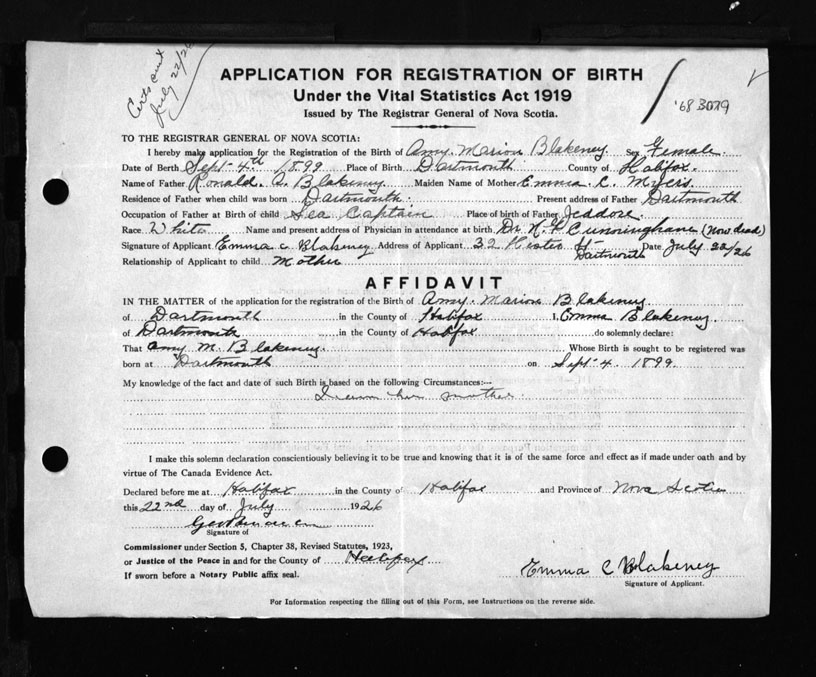 Certs sent
July 22/26
APPLICATION FOR REGISTRATION OF BIRTH
Under the Vital Statistics Act 1919
Issued by The Registrar General of Nova Scotia.
'68 3079
TO THE REGISTRAR GENERAL OF NOVA SCOTIA:
I hereby make application for the Registration of the Birth of Amy Marion Blakeney Sex Female
Date of Birth Sept 4th 1899 Place of Birth Dartmouth County of Halifax
Name of Father Ronald A. Blakeney Maiden Name of Mother Emma C. Myers
Residence of Father when child was born Dartmouth Present address of Father Dartmouth
Occupation of Father at Birth of child Sea Captain Place of birth of Father Jeddore
Race White Name and present address of Physician in attendance at birth Dr. Cunningham (now dead)
Signature of Applicant Emma C Blakeney Address of Applicant 32 St Dartmouth Date July 22/26
Relationship of Applicant to child Mother
AFFIDAVIT
IN THE MATTER of the application for the registration of the Birth of Amy Marion Blakeney
of Dartmouth in the County of Halifax I, Emma Blakeney
of Dartmouth in the County of Halifax do solemnly declare:
That Amy M. Blakeney Whose Birth is sought to be registered was
born at Dartmouth on Sept 4. 1899.
My knowledge of the fact and date of such Birth is based on the following Circumstances:—
I am her mother.
I make this solemn declaration conscientiously believing it to be true and knowing that it is of the same force and effect as if made under oath and by
virtue of The Canada Evidence Act.
Declared before me at Halifax in the County of Halifax and Province of Nova Scotia
this 22nd day of July 1926
Signature of
Commissioner under Section 5, Chapter 38, Revised Statutes, 1923,
or Justice of the Peace in and for the County of Halifax
If sworn before a Notary Public affix seal.
Emma C Blakeney
Signature of Applicant.
For Information respecting the filling out of this Form, see Instructions on the reverse side.